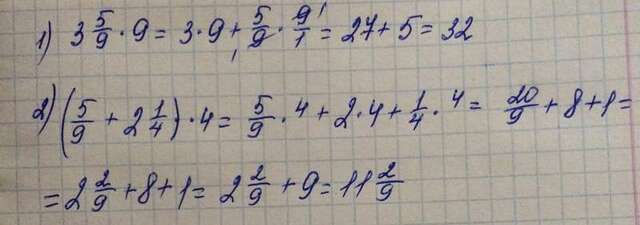 1) 3 5/9 · 9 = 3 · 9 + 5/9 · 9/1 = 27 + 5 = 32
2) (5/9 + 2 1/4) · 4 = 5/9 · 4 + 2 · 4 + 1/4 · 4 = 20/9 + 8 + 1 =
= 2 2/9 + 8 + 1 = 2 2/9 + 9 = 11 2/9